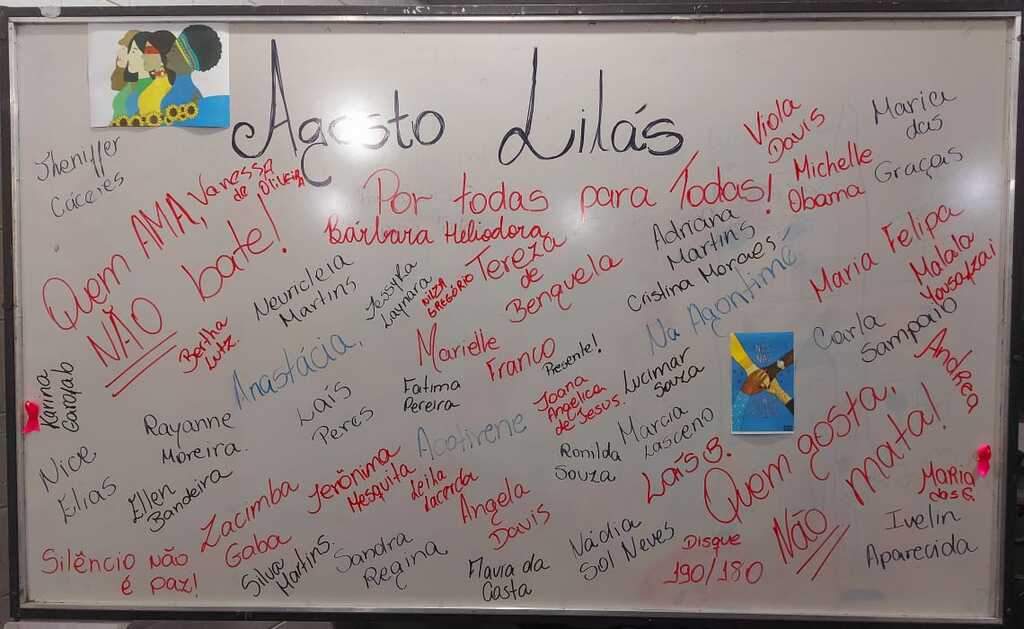 Agosto Lilás
Por todas para Todas!
Jheniffer
Cáceres
Quem AMA,
NÃO bate!
Vanessa
de Oliveira
Bárbara Heliodora
Viola
Davis
Maria
das
Graças
Michelle
Obama
Adriana
Martins
Cristina Moraes
Neuricleia
Martins
Jessyka
Laynara
NILZA
GREGÓRIO
Tereza
de
Benguela
Maria Felipa
Malala
Yousafzai
Bertha
Lutz.
Anastácia,
Marielle
Franco
Presente!
Na Agontimé
Carla
Sampaio
Andrea
Karina
Rayanne
Moreira.
Laís
Peres
Fatima
Pereira
Joana
Angélica
de Jesus.
Lucimar
Souza
Nice
Elias
Ellen
Bandeira
Acotirene
Ronilda
Souza
Marcia
Lasceno
Laís B.
Quem gosta,
Não mata!
Zacimba
Gaba
Jerônima
Mesquita
Leila
Lacerda
Angela
Davis
Maria
das G.
Silêncio não
é paz!
Silva
Martins.
Sandra
Regina
Flavia da
Costa
Nádia
Sol Neves
Disque
190/180
Ivelin
Aparecida